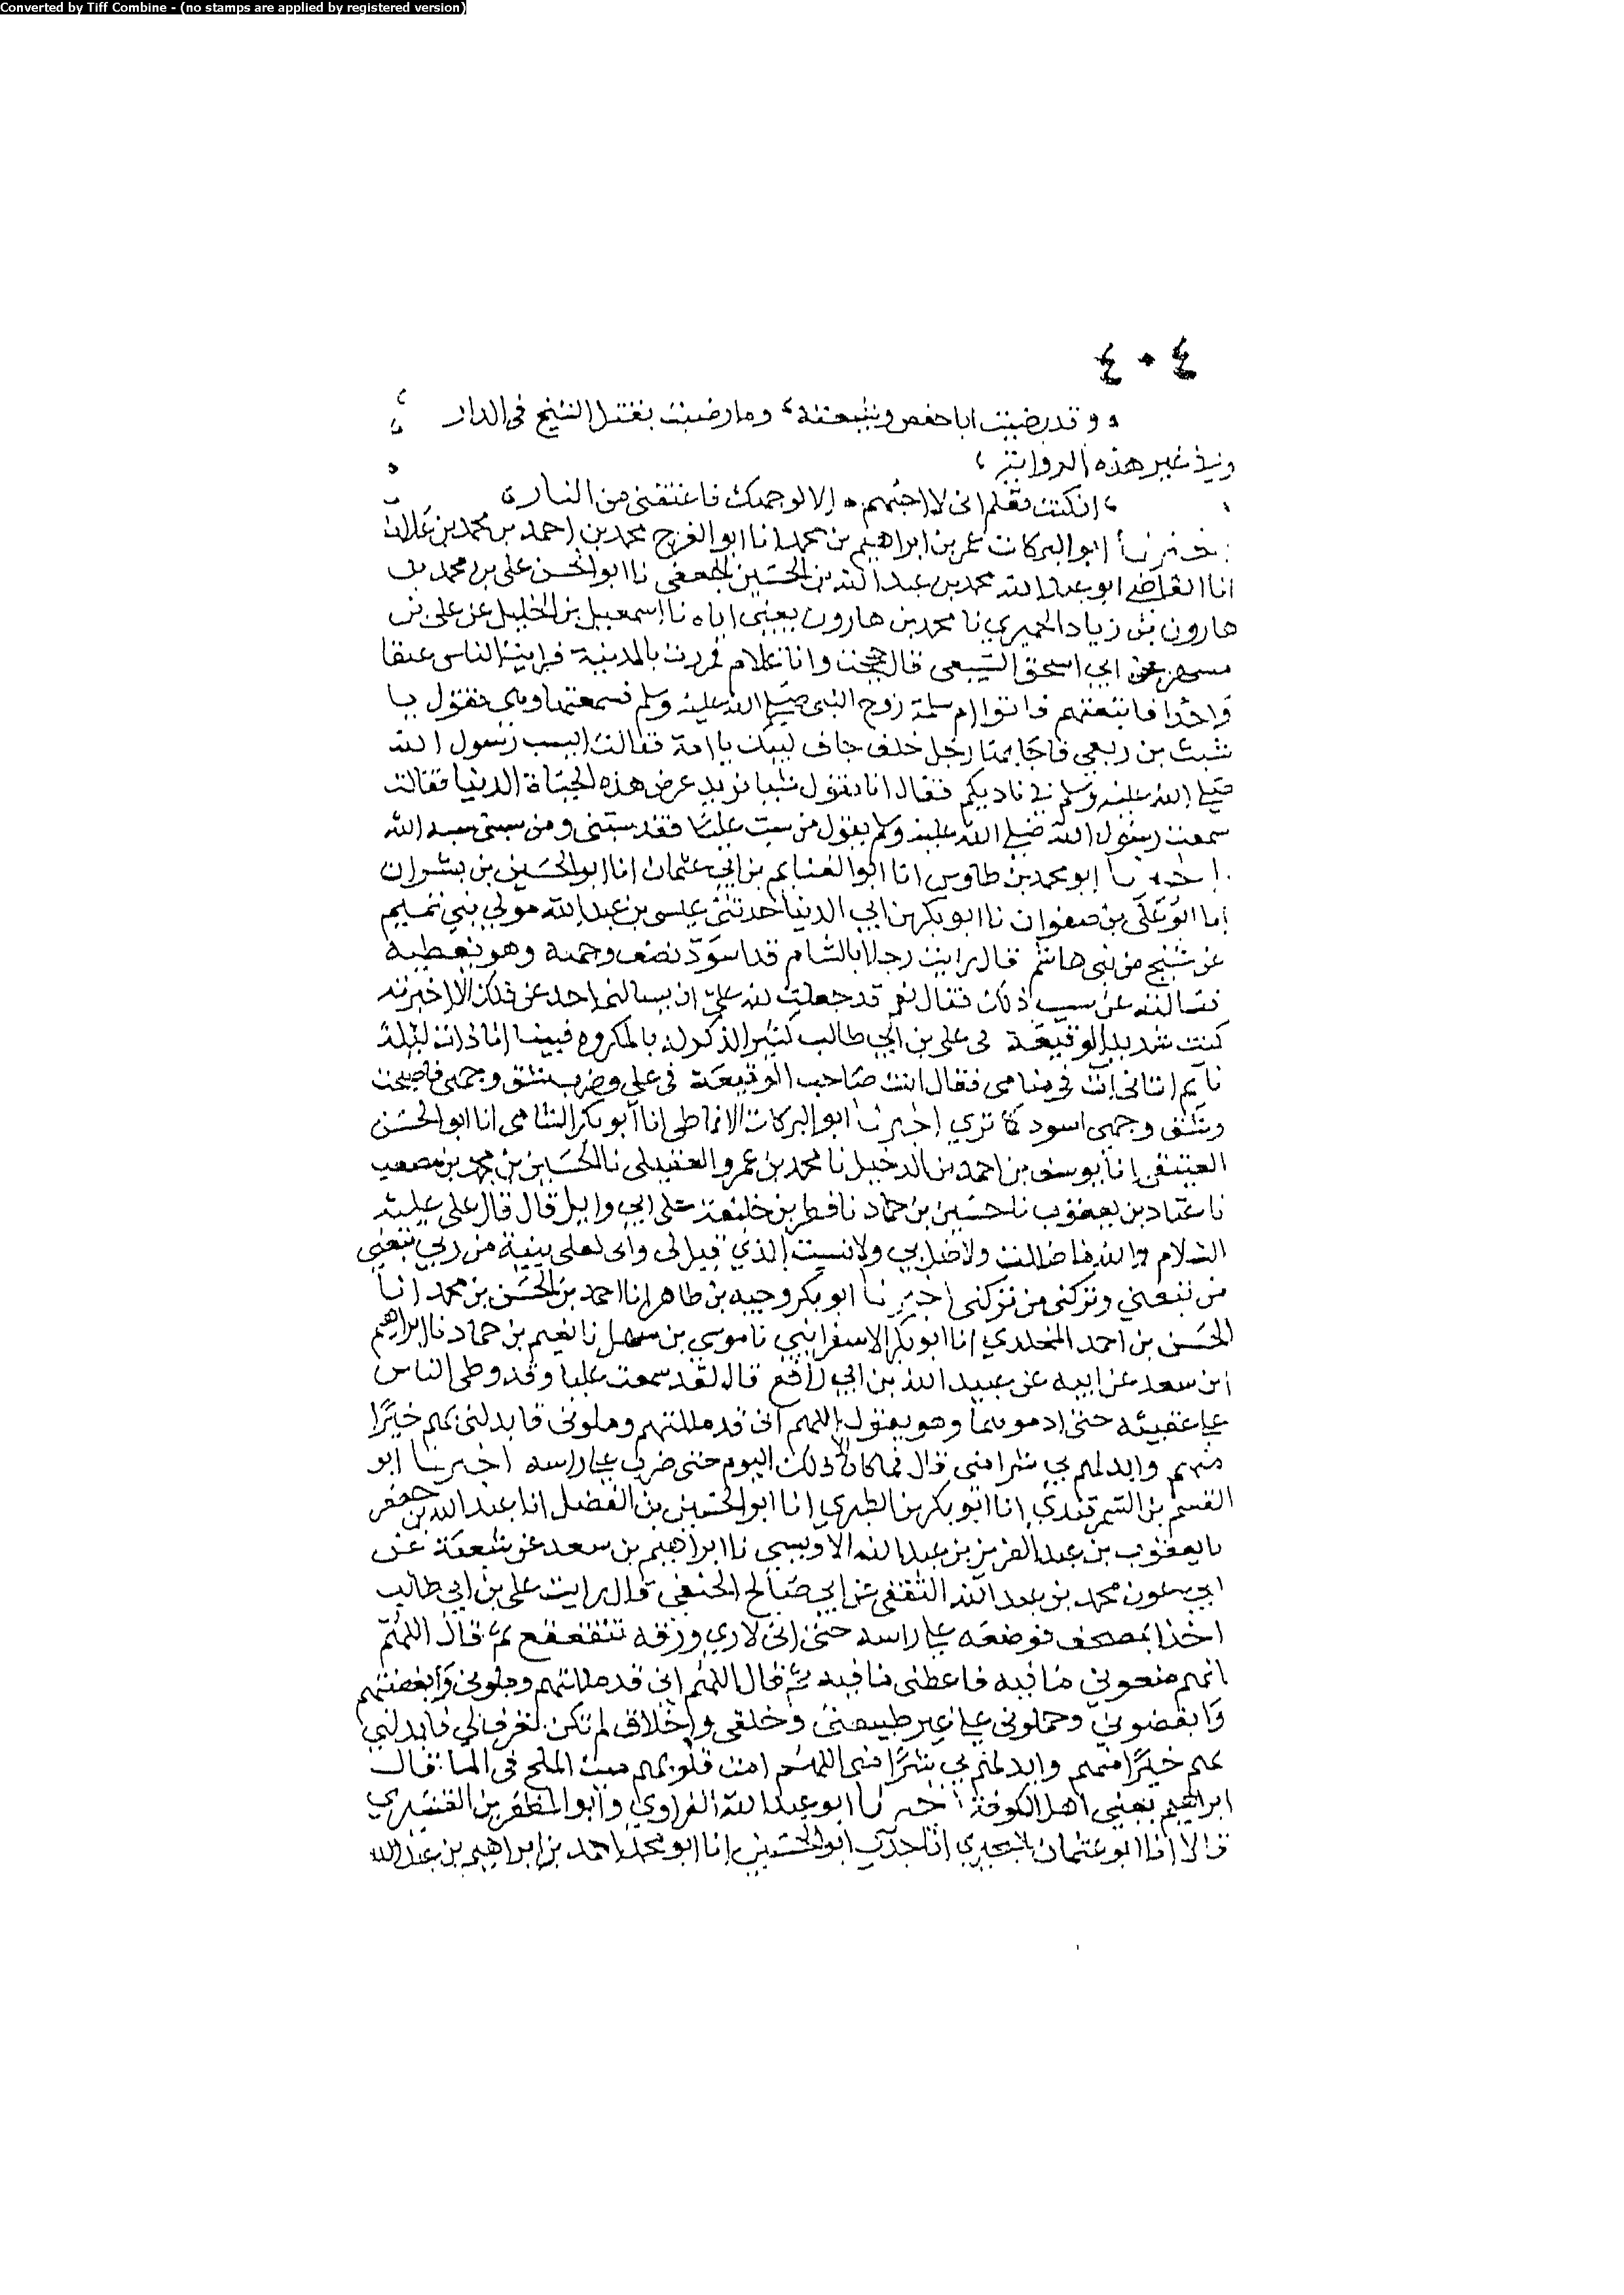 Converted by Tiff Combine - (no stamps are applied by registered version)
٤٠٤
وقد رضيت ابا حفص وشيعته وما رضيت بقتل الشيخ في الدار
وفي غير هذه الرواية
ان كنت تعلم اني لا احبهم الا لوجهك فاعتقني من النار
اخبرنا ابو البركات عمر بن ابراهيم بن محمد انا ابو الفرج محمد بن احمد بن محمد بن علان
انا القاضي ابو عبد الله محمد بن عبد الله بن الحسين الجعفي نا ابو الحسن علي بن محمد بن
هارون بن زياد الحميري نا محمد بن هارون يعني اباه نا اسمعيل بن الخليل عن علي بن
مسهر عن ابي اسحق السبيعي قال حججت وانا غلام فمررت بالمدينة فرايت الناس عنقا
واحدا فاتبعتهم فاتوا ام سلمة زوج النبي صلى الله عليه وسلم فسمعتها وهي تقول يا
شبث بن ربعي فاجابها رجل جلف جاف لبيك يا امة فقالت ايسب رسول الله
صلى الله عليه وسلم في ناديكم فقال انا نقول شيا نريد عرض هذه الحياة الدنيا فقالت
سمعت رسول الله صلى الله عليه وسلم يقول من سب عليا فقد سبني ومن سبني سب الله
اخبرنا ابو محمد بن طاوس انا ابو الغنايم بن ابي عثمان انا ابو الحسين بن بشران
انا ابو علي بن صفوان نا ابو بكر بن ابي الدنيا حدثني عيسى بن عبد الله مولى بني تميم
عن شيخ من بني هاشم قال رايت رجلا بالشام قد اسود نصف وجهه وهو يغطيه
فسالته عن سبب ذلك فقال نعم قد جعلت لله علي ان لا يسالني احد عن ذلك الا اخبرته
كنت شديد الوقيعة في علي بن ابي طالب كثير الذكر له بالمكروه فبينا انا ذات ليلة
نايم اتاني ات في منامي فقال انت صاحب الوقيعة في علي وضرب شق وجهي فاصبحت
وشق وجهي اسود كما ترى اخبرنا ابو البركات الانماطي انا ابو بكر الشامي انا ابو الحسن
العتيقي انا يوسف بن احمد بن الدخيل نا محمد بن عمرو العقيلي نا الحسين بن محمد بن مصعب
نا عباد بن يعقوب نا حسين بن حماد نا فطر بن خليفة عن ابي وايل قال قال علي عليه
السلام والله ما ضللت ولا ضل بي ولا نسيت الذي قيل لي واني لعلى بينة من ربي تبعني
من تبعني وتركني من تركني اخبرنا ابو بكر وجيه بن طاهر انا احمد بن الحسن بن محمد انا
الحسن بن احمد المخلدي انا ابو بكر الاسفراييني نا موسى بن سهل نا نعيم بن حماد نا ابراهيم
ابن سعد عن ابيه عن عبيد الله بن ابي رافع قال لقد سمعت عليا وقد وطى الناس
على عقبيه حتى ادموهما وهو يقول اللهم اني قد مللتهم وملوني فابدلني بهم خيرا
منهم وابدلهم بي شرا مني قال فما كان الا ذلك اليوم حتى ضرب على راسه اخبرنا ابو
القسم بن السمرقندي انا ابو بكر بن الطبري انا ابو الحسين بن الفضل انا عبد الله بن جعفر
نا يعقوب بن عبد العزيز بن عبد الله الاويسي نا ابراهيم بن سعد عن شعبة عن
ابي عون محمد بن عبد الله الثقفي عن ابي صالح الحنفي قال رايت علي بن ابي طالب
اخذ المصحف فوضعه على راسه حتى اني لارى ورقه تتقعقع ثم قال اللهم
انهم منعوني ما فيه فاعطني ما فيه ثم قال اللهم اني قد مللتهم وملوني وابغضتهم
وابغضوني وحملوني على غير طبيعتي وخلقي واخلاق لم تكن تعرف لي فابدلني
بهم خيرا منهم وابدلهم بي شرا مني اللهم امت قلوبهم ميث الملح في الما قال
ابراهيم يعني اهل الكوفة اخبرنا ابو عبد الله الفراوي وابو المظفر بن القشيري
قالا انا ابو عثمان البحيري انا جدي ابو الحسين انا ابو محمد احمد بن ابراهيم بن عبد الله